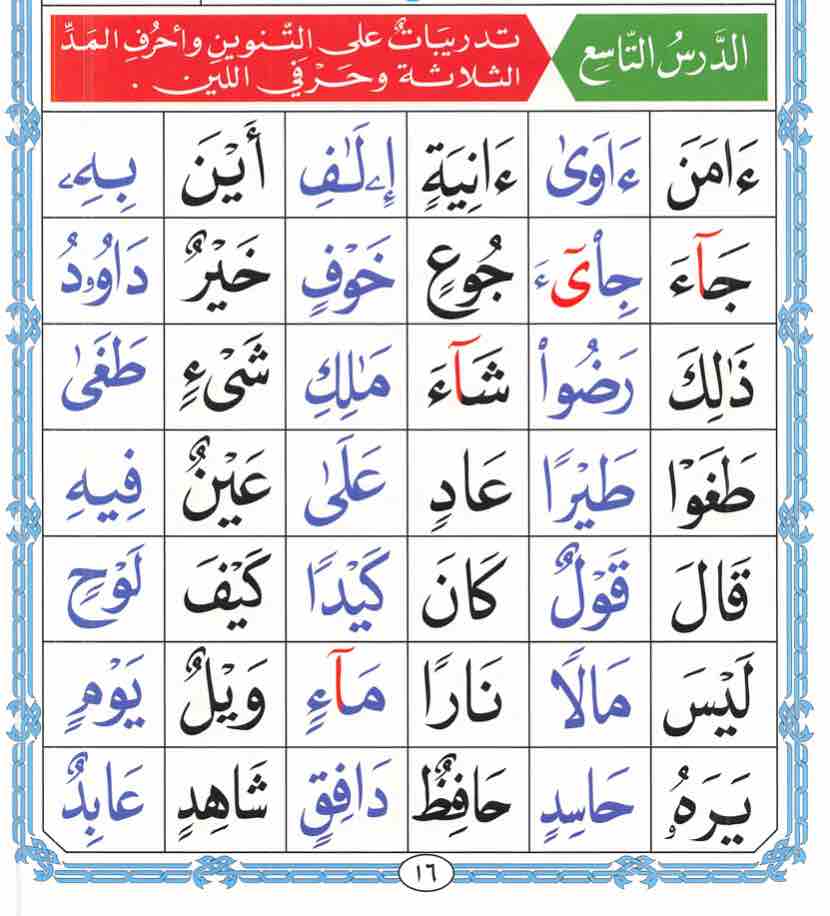 الدَّرسُ التَّاسِع
تدريبَاتٌ على التّنوينِ وأحرُفِ المَدِّ
الثلاثة وحَرْفي اللين .
ءَامَنَ ءَاوَىٰ ءَانِيَةٍ إِۦلَـٰفِ أَيْنَ بِهِۦ
جَآءَ جِاْىٓءَ جُوعٍ خَوْفٍ خَيْرٌ دَاوُۥدُ
ذَٰلِكَ رَضُواْ شَآءَ مَـٰلِكِ شَىْءٍ طَغَىٰ
طَغَوْا طَيْرًا عَادٍ عَلَىٰ عَيْنٌ فِيهِ
قَالَ قَوْلٌ كَانَ كَيْدًا كَيْفَ لَوْحٍ
لَيْسَ مَالًا نَارًا مَآءٍ وَيْلٌ يَوْمٍ
يَرَهُۥ حَاسِدٍ حَافِظٌ دَافِقٍ شَاهِدٍ عَابِدٌ
١٦